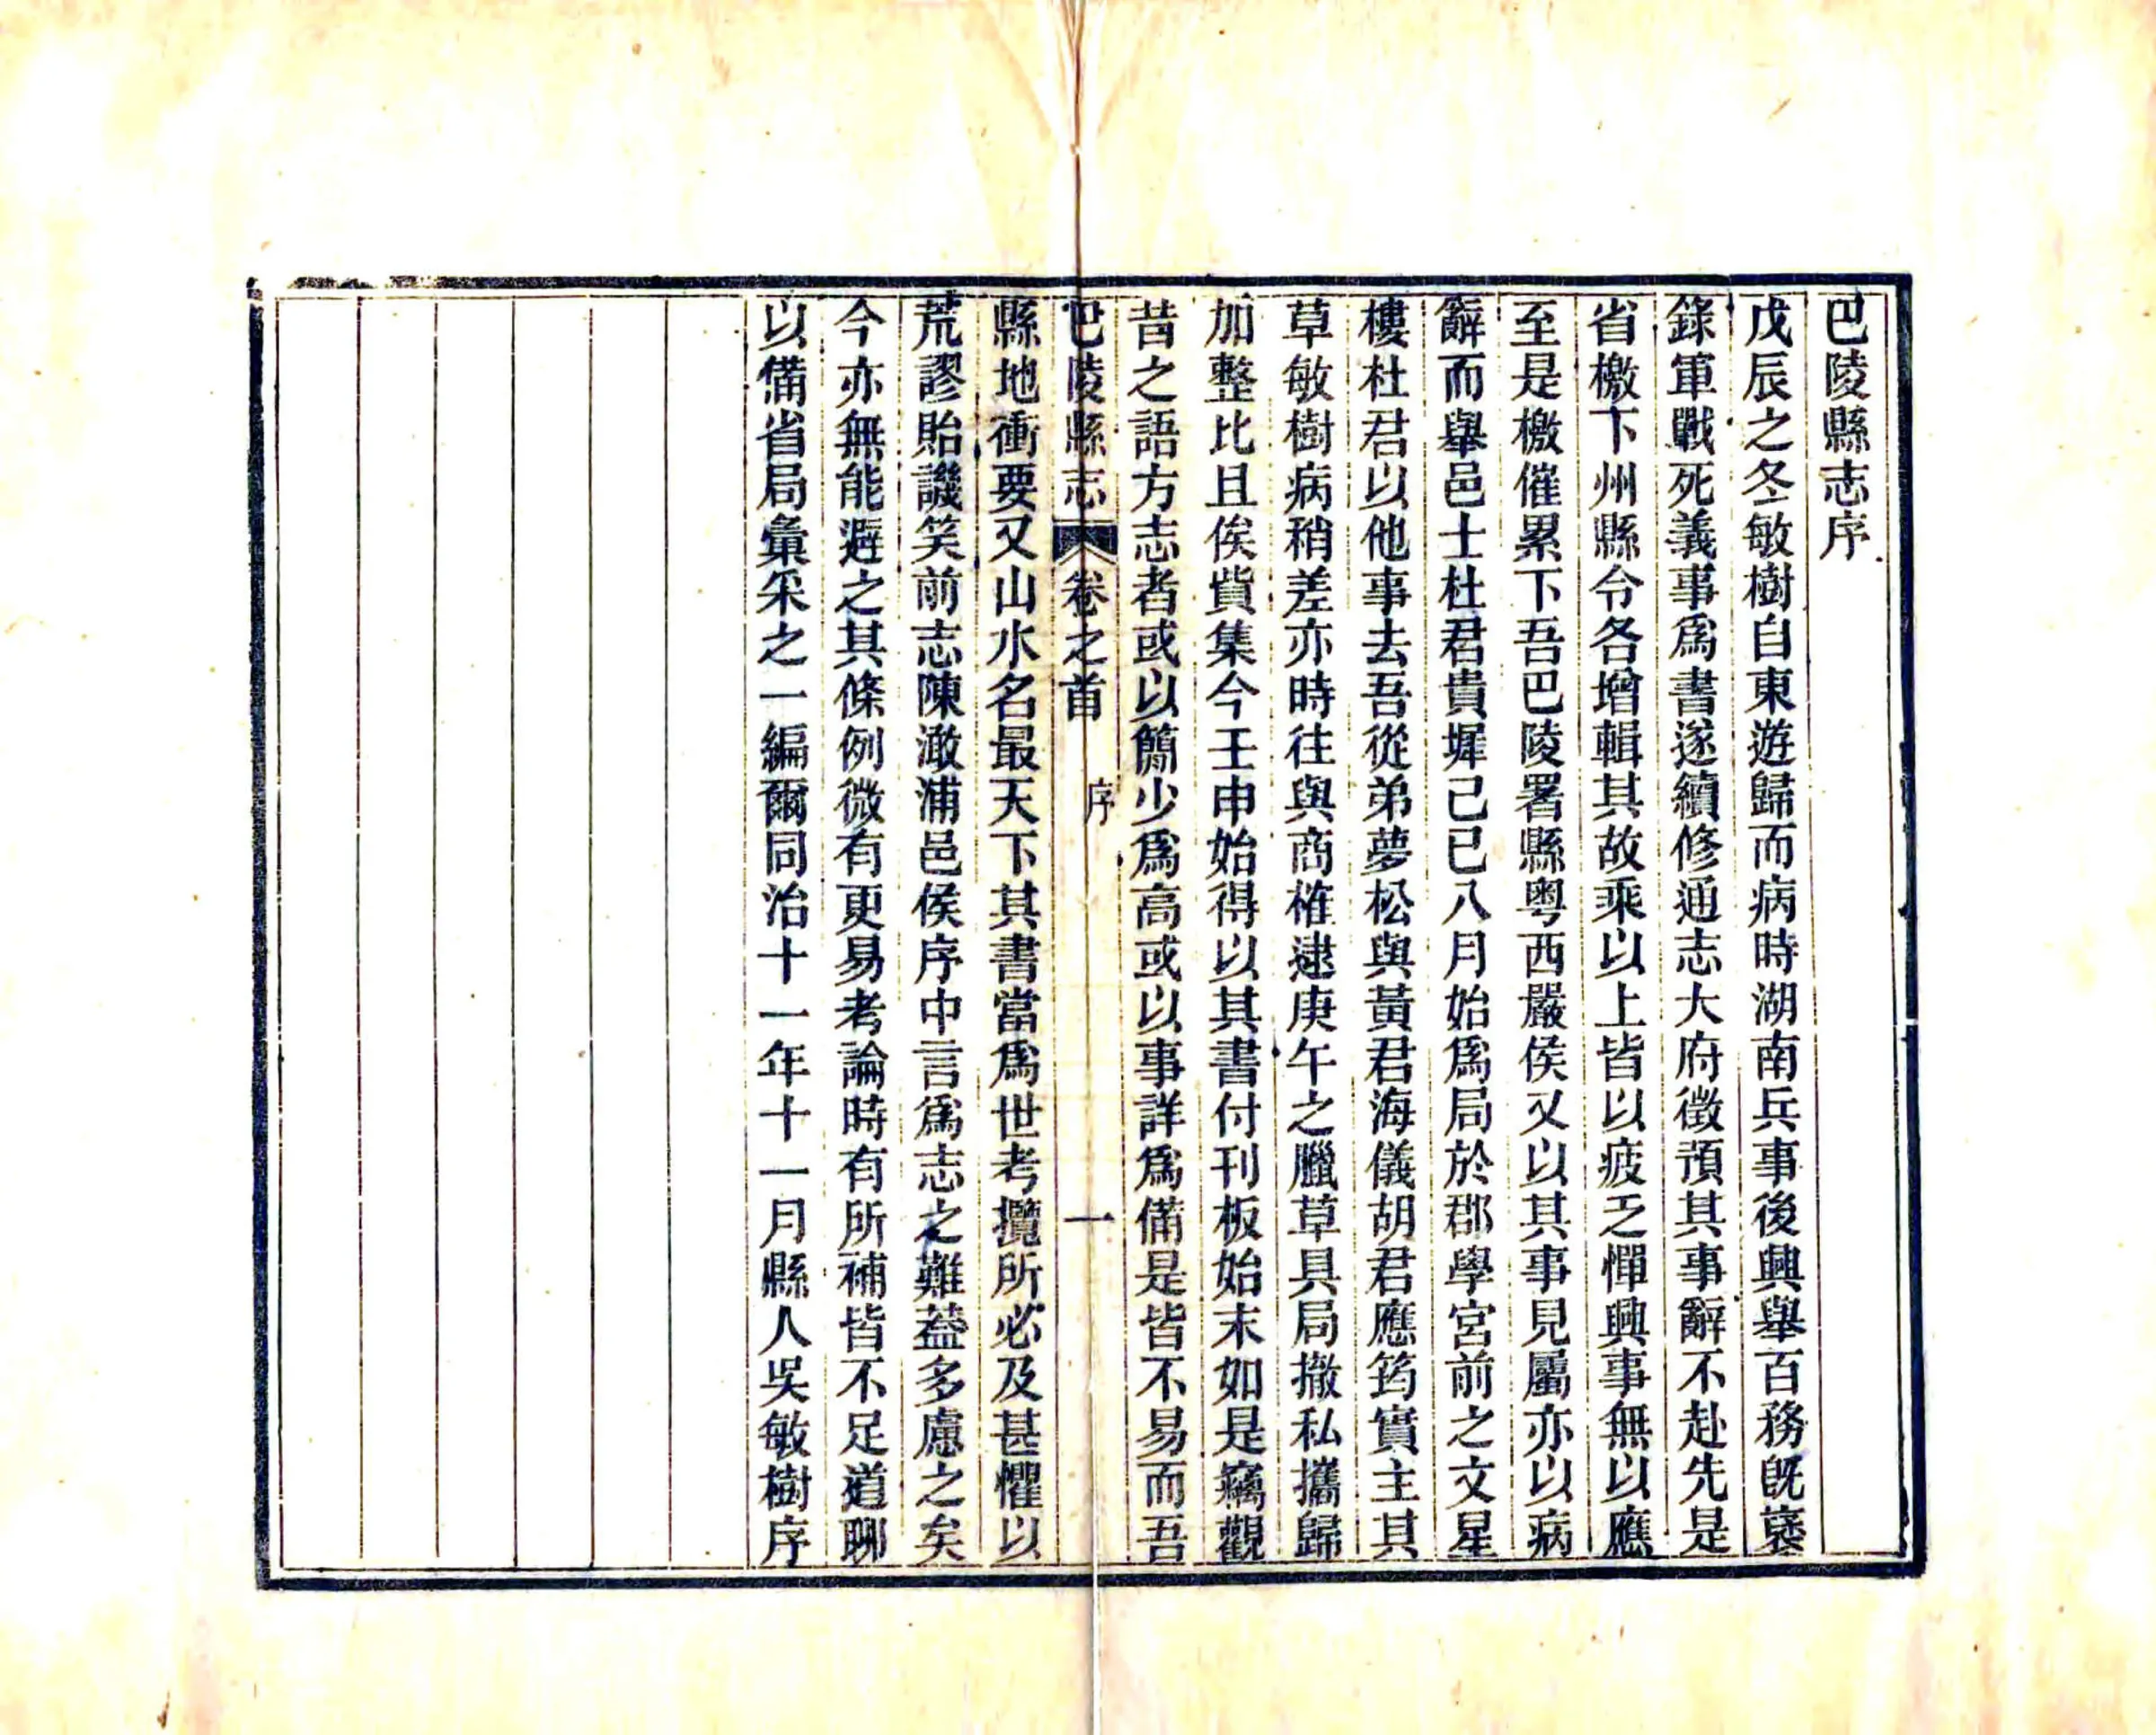 巴陵縣志序
戊辰之冬敏樹自東遊歸而病時湖南兵事後興舉百務旣裦
錄軍戰死義事爲書遂續修通志大府徵預其事辭不赴先是
省檄下州縣令各增輯其故乘以上皆以疲乏憚興事無以應
至是檄催累下吾巴陵署縣粤西嚴侯又以其事見屬亦以病
辭而舉邑士杜君貴墀己巳八月始爲局於郡學宮前之文星
樓杜君以他事去吾從弟夢松與黃君海儀胡君應筠實主其
草敏樹病稍差亦時往與商榷逮庚午之臘草具局撤私攜歸
加整比且俟貲集今壬申始得以其書付刊板始末如是竊觀
昔之語方志者或以簡少爲高或以事詳爲備是皆不易而吾
巴陵縣志 卷之首 序 一
縣地衝要又山水名最天下其書當爲世考攬所必及甚懼以
荒謬貽譏笑前志陳澉浦邑侯序中言爲志之難葢多慮之矣
今亦無能避之其條例微有更易考論時有所補皆不足道聊
以備省局彙采之一編爾同治十一年十一月縣人吳敏樹序